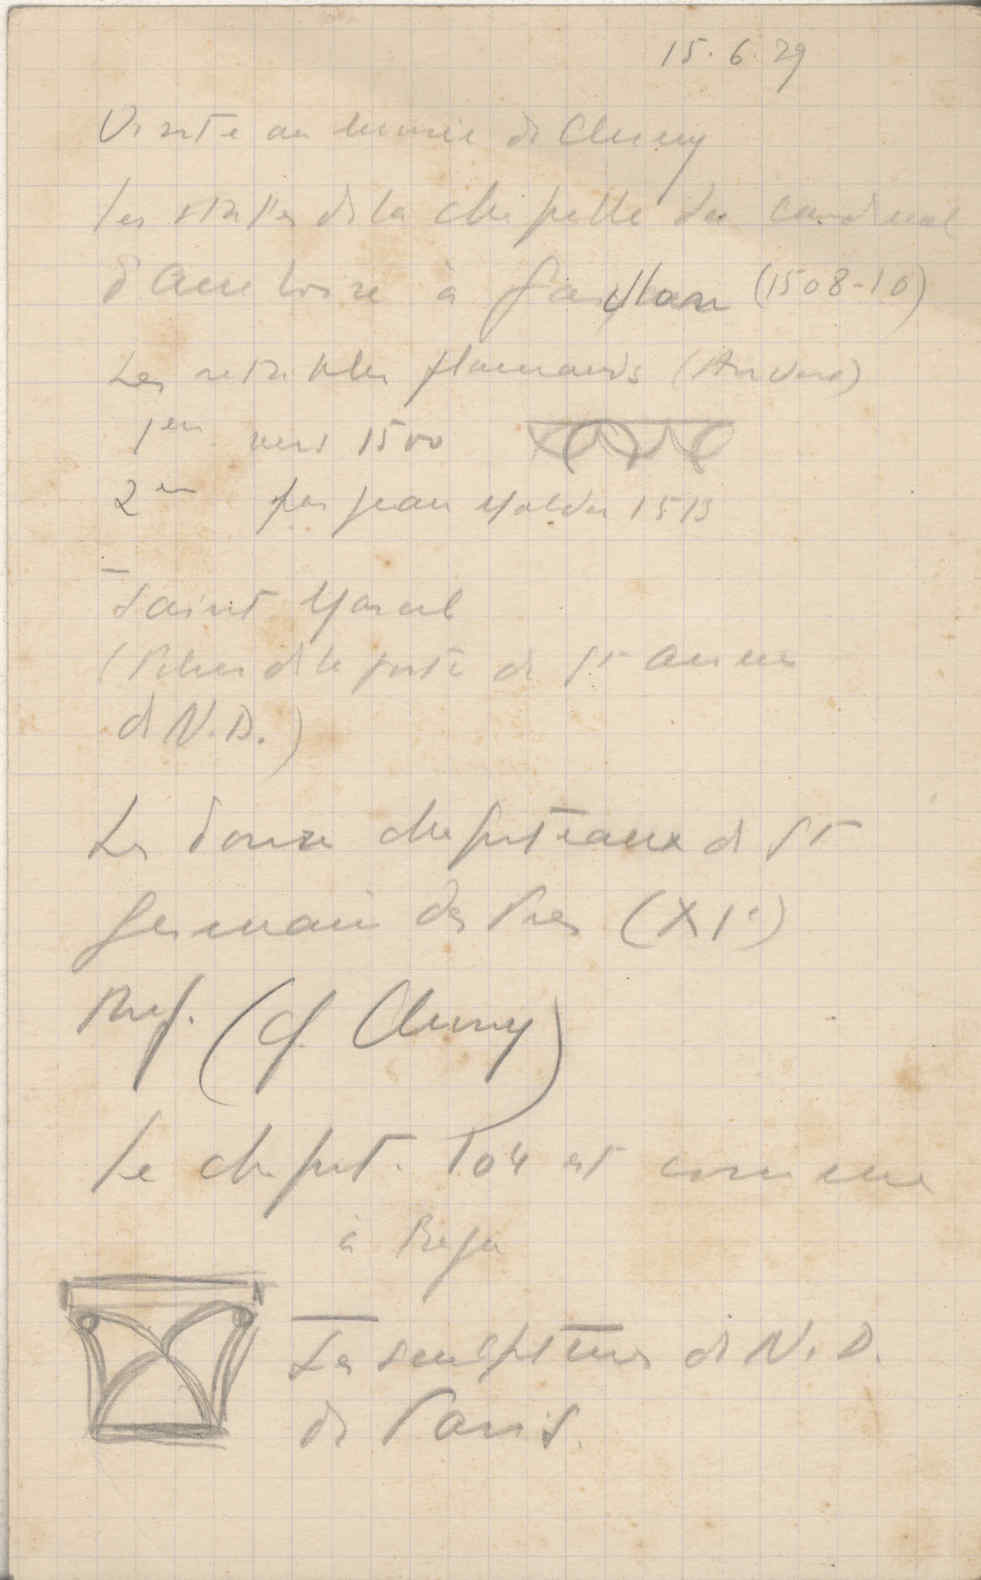 15.6.29
Visite au musée de Cluny
Les stalles de la chapelle du cardinal
d'Amboise à Gaillon (1508-10)
Les retables flamands (Anvers)
1er vers 1500
2em par Jean Molder 1513
Saint Marcel
(Pilier de la porte de St Anne
de N.D.)
Les douze chapiteaux de St
Germain des Prés (XIe)
(cf. Cluny)
Le chapit. 104 est comme
à
Les sculptures de N.D.
de Paris.